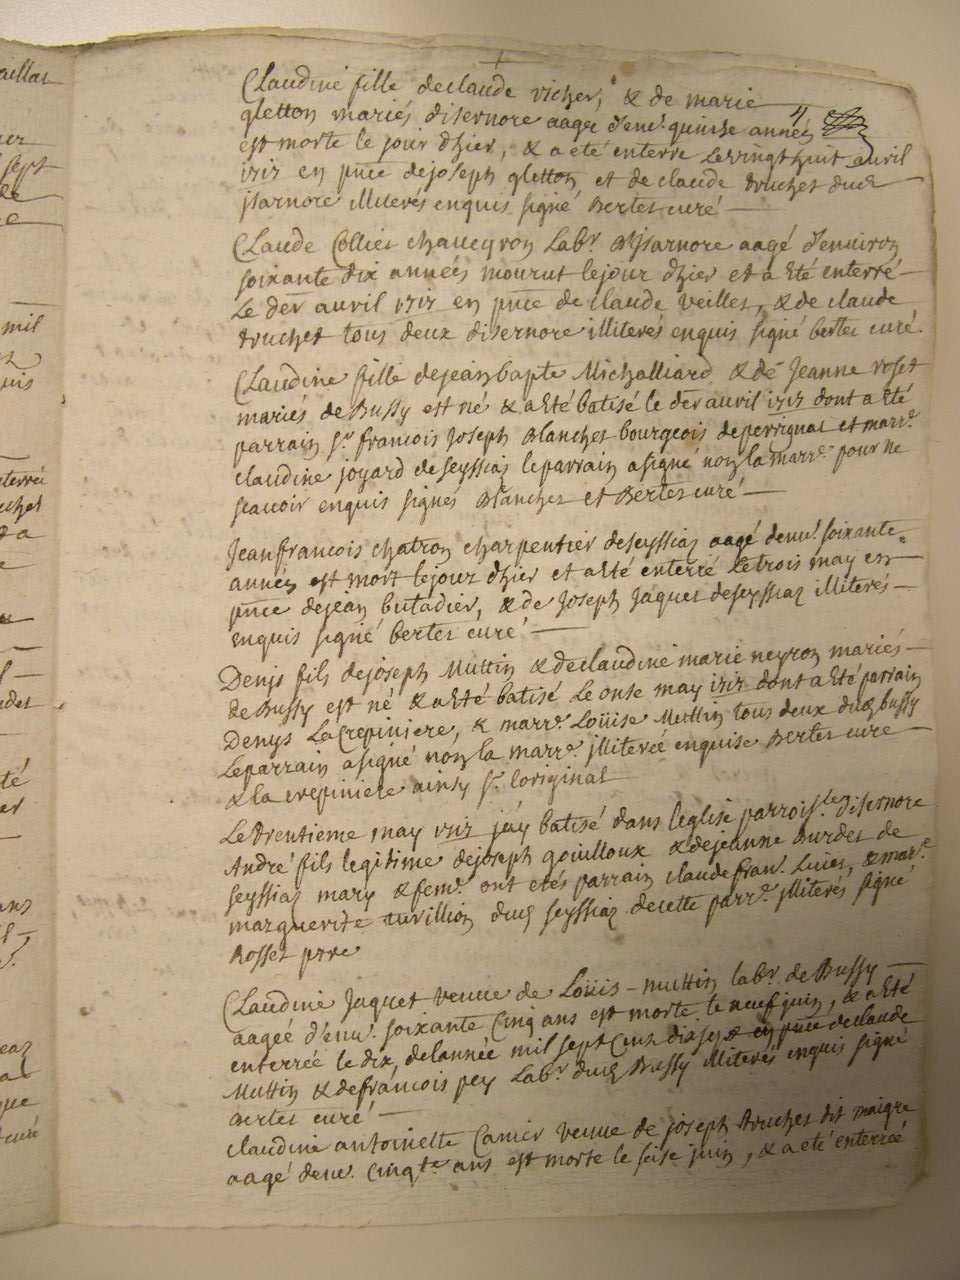 aillat
sept
de
Claudine fille declaude vicher, & de marie
gletton mariés disernore aagée d'env. quinse années
est morte le jour d'hier, & a eté enterré le vingt huit avril
1717 en pnce dejoseph gletton et de claude truchet dud
jsarnore illiterés enquis signé Bertet curé
Claude Collier chavegron lab.r d'jsarnore aagé d'environ
soixante dix années mourut lejour d'hier et a eté enterré
Le der avril 1717 en pnce de claude veillet, & de claude
truchet tous deux disernore illiteres enquis signé bertet curé.
Claudine fille dejean bapte Michalliard & de Jeanne roset
mariés de Bussy est né & a eté batisé le der avril 1717 dont a eté
parrain S.r francois Joseph Blanchet bourgeois deperrignat et marr.e
claudine joyard de seyssiaz le parrain a signé non la marr.e pour ne
scavoir enquis signés Blanchet et Bertet curé
Jean francois chatron charpentier de seyssiaz aagé denv.r soixante
années est mort lejour d'hier et a eté enterré Letrois may en
pnce dejean butadier, & de Joseph Jaquet de seyssiaz illiterés
enquis signé bertet curé
Denys fils dejoseph Muttin & declaudine marie neyron mariés
de Bussy est né & a eté batisé Le onse may 1717 dont a eté parrain
Denys La Crepiniere, & marr.e Loüise Muttin tous deux dud bussy
Le parrain a signé non la marr.e jlliterée enquise Bertet curé
& la crepiniere ainsy S. loriginal
Le trentieme may 1717 j'ay batisé dans léglise parrois.le disernore
André fils legitime dejoseph gouilloux & dejeanne Burdet de
seyssiaz mary & fem.e ont etés parrain claude fran. Luiet, & mar.e
marguerite tuvillion dud seyssiaz decette parr.e jlliterés signé
Rosset pbre
Claudine Jaquet veuve de Loüis muttin lab.r de Bussy
aagée d'env. soixante Cinq ans est morte le neuf juin, & a eté
enterrée le dix, delannée mil sept cent dixsept en pnce declaude
Muttin & defrancois pey Lab.r dud Bussy illiterés enquis signé
Bertet curé
claudine antoinette Canier veuve de joseph truchet dit maigre
aagé denv. Cinq.te ans est morte le seise juin, & a eté enterrée